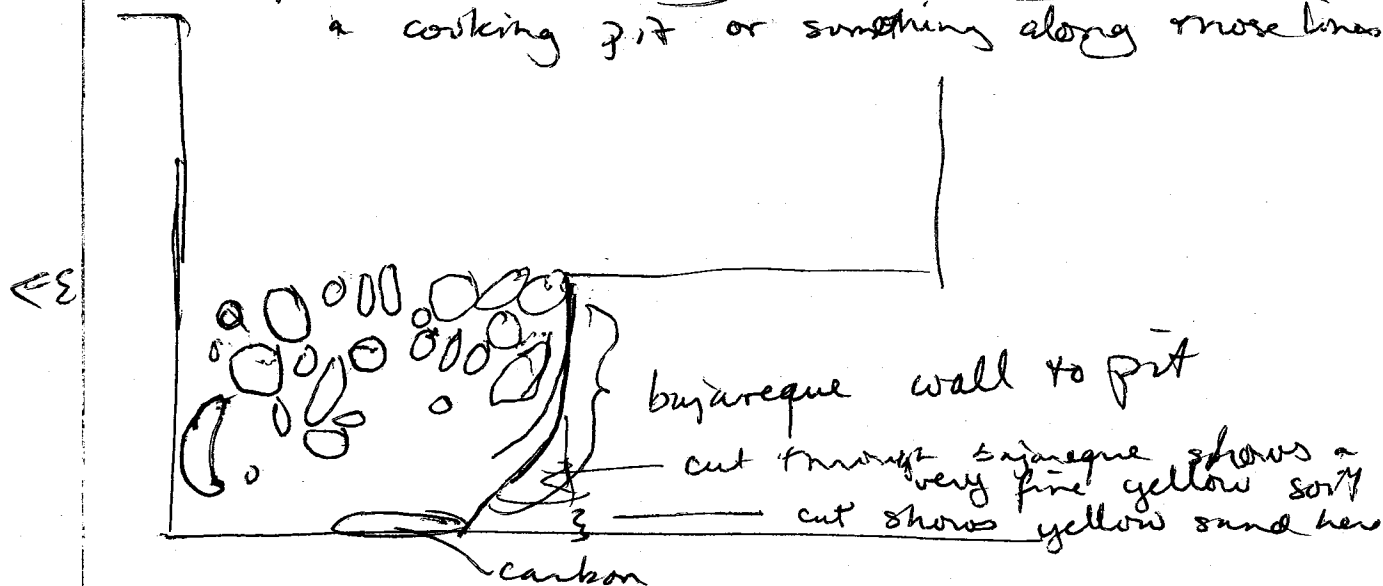 a cooking pit or something along those lines
bajareque wall to pit
cut through bajareque shows a
very fine yellow soil
cut shows yellow sand here
carbon